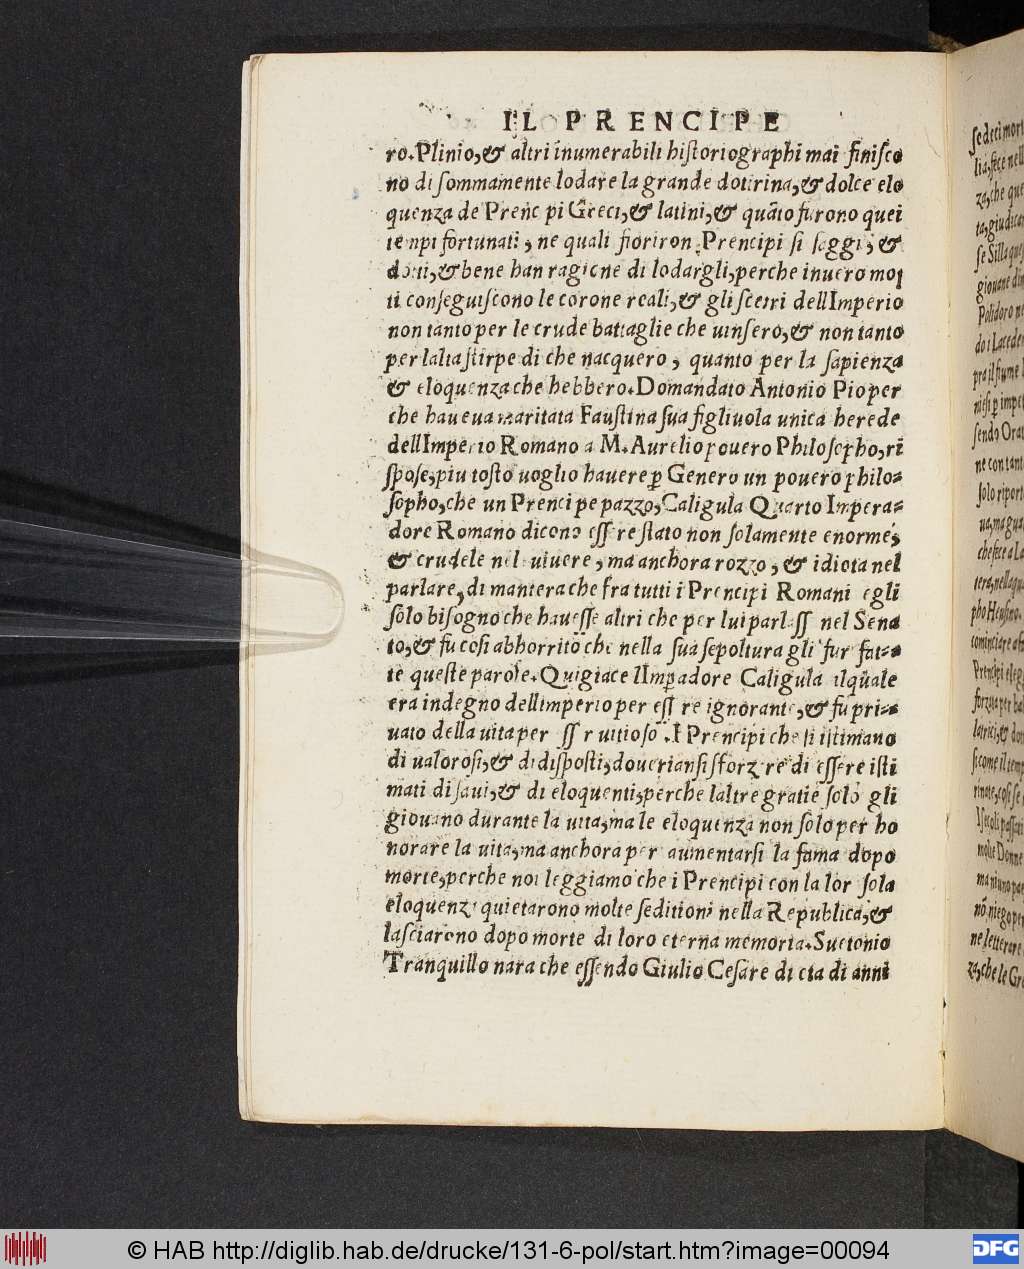 IL PRENCIPE
ro. Plinio, & altri inumerabili historiographi mai finisco
no di sommamente lodare la grande dottrina, & dolce elo
quenza de Prencipi Greci, & latini, & quãto furono quei
tempi fortunati, ne quali fioriron Prencipi si saggi, &
dotti, & bene han ragione di lodargli, perche in uero mol
ti conseguiscono le corone reali, & gli scetri dell Imperio
non tanto per le crude battaglie che uinsero, & non tanto
per lalta stirpe di che nacquero, quanto per la sapienza
& eloquenza che hebbero. Domandato Antonio Pio per
che haueua maritata Faustina sua figliuola unica herede
dell Imperio Romano a M. Aurelio pouero Philosopho, ri
spose, piu tosto uoglio hauere ꝑ Genero un pouero philo-
sopho, che un Prencipe pazzo, Caligula Quarto Impera-
dore Romano dicono essere stato non solamente enorme,
& crudele nel uiuere, ma anchora rozzo, & idiota nel
parlare, di maniera che fra tutti i Prencipi Romani egli
solo bisogno che hauesse altri che per lui parlass nel Sena
to, & fu cosi abhorrito che nella sua sepoltura gli fur fat-
te queste parole. Qui giace l Imꝑadore Caligula ilquale
era indegno dell imperio per ess re ignorante, & fu pri-
uato della uita per ss r uitioso. I Prencipi che si istimano
di ualorosi, & di disposti, doueriansi sforzare di essere isti
mati di saui, & di eloquenti, perche laltre gratie solo gli
giouano durante la uita, ma le eloquenza non solo per ho
norare la uita, ma anchora per aumentarsi la fama dopo
morte, perche noi leggiamo che i Prencipi con la lor sola
eloquenza quietarono molte seditioni nella Republica, &
lasciarono dopo morte di loro eterna memoria. Suetonio
Tranquillo nara che essendo Giulio Cesare di eta di anni
© HAB http://diglib.hab.de/drucke/131-6-pol/start.htm?image=00094
DFG